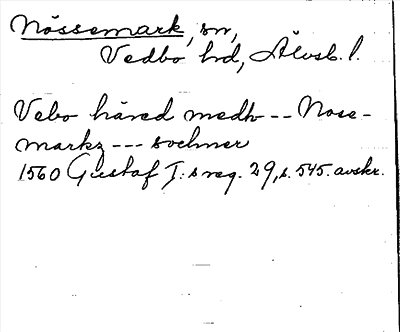 Nössemark, sn,
Vedbo hd, Älvsb. l.
Vebo häred medh -- Nose-
markz --- sochner
1560 Gustaf I:s reg. 29, s. 545. avskr.